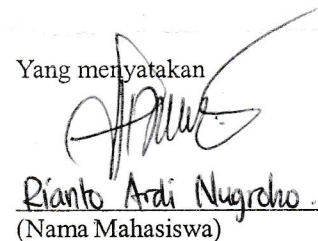 Yang menyatakan
Rianto Ardi Nugroho.
(Nama Mahasiswa)